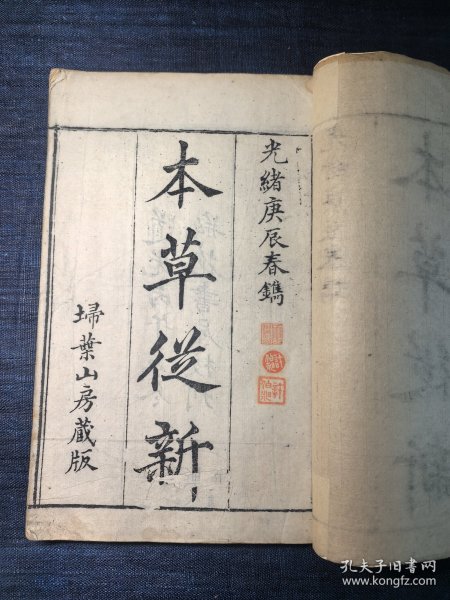 光緒庚辰春鐫
本草從新
埽葉山房藏版
孔夫子旧书网
www.kongfz.com